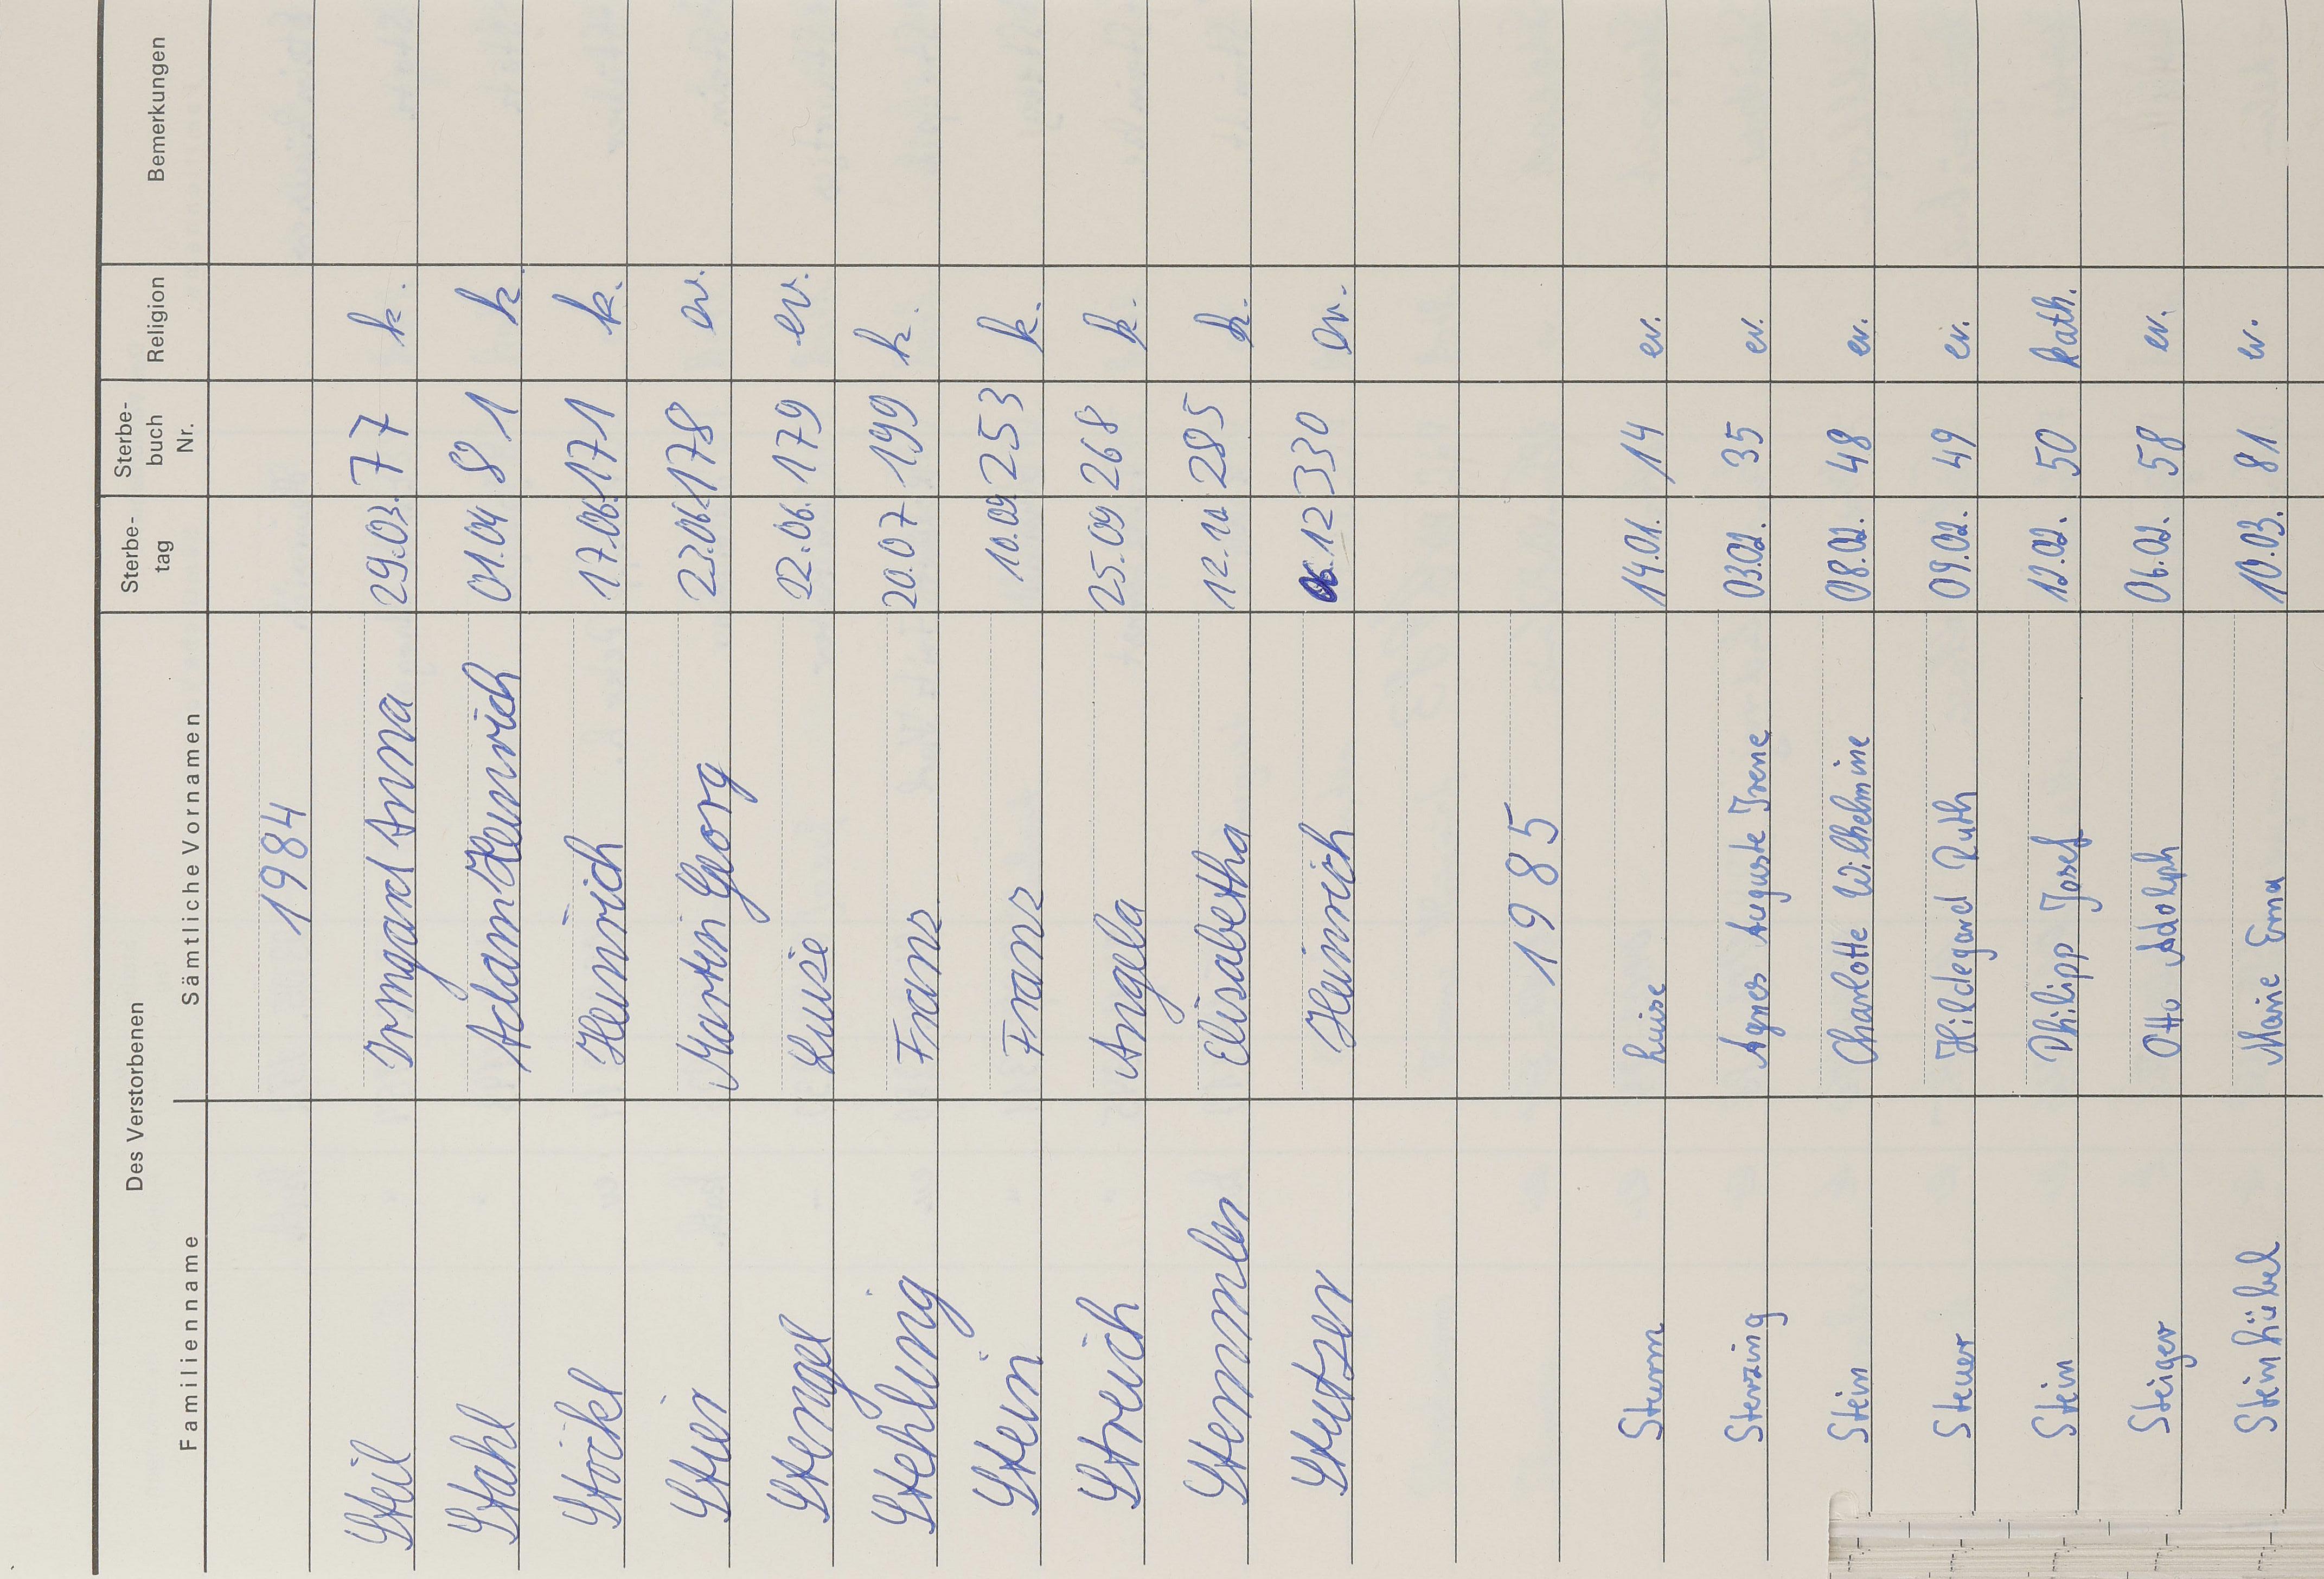 Des Verstorbenen
Familienname Sämtliche Vornamen Sterbe-tag Sterbe-buch Nr. Religion Bemerkungen
1984
Steil Irmgard Anna 29.03. 77 k.
Stahl Adam Heinrich 01.04 81 k
Stöckl Heinrich 17.06. 171 k.
Stier Martin Georg 23.06. 178 ev.
Stengel Luise 22.06. 179 ev.
Stehling Franz 20.07 199 k.
Stein Franz 10.09 253 k.
Streich Angela 25.09 268 k.
Stemmler Elisabetha 12.10. 285 k.
Stutzer Heinrich 06.12 330 ev.
1985
Sturm Luise 14.01. 14 ev.
Sterzing Agnes Auguste Irene 03.02. 35 ev.
Stein Charlotte Wilhelmine 08.02. 48 ev.
Steuer Hildegard Ruth 09.02. 49 ev.
Stein Philipp Josef 12.02. 50 kath.
Steiger Otto Adolph 06.02. 58 ev.
Steinhübel Marie Erna 10.03. 81 ev.